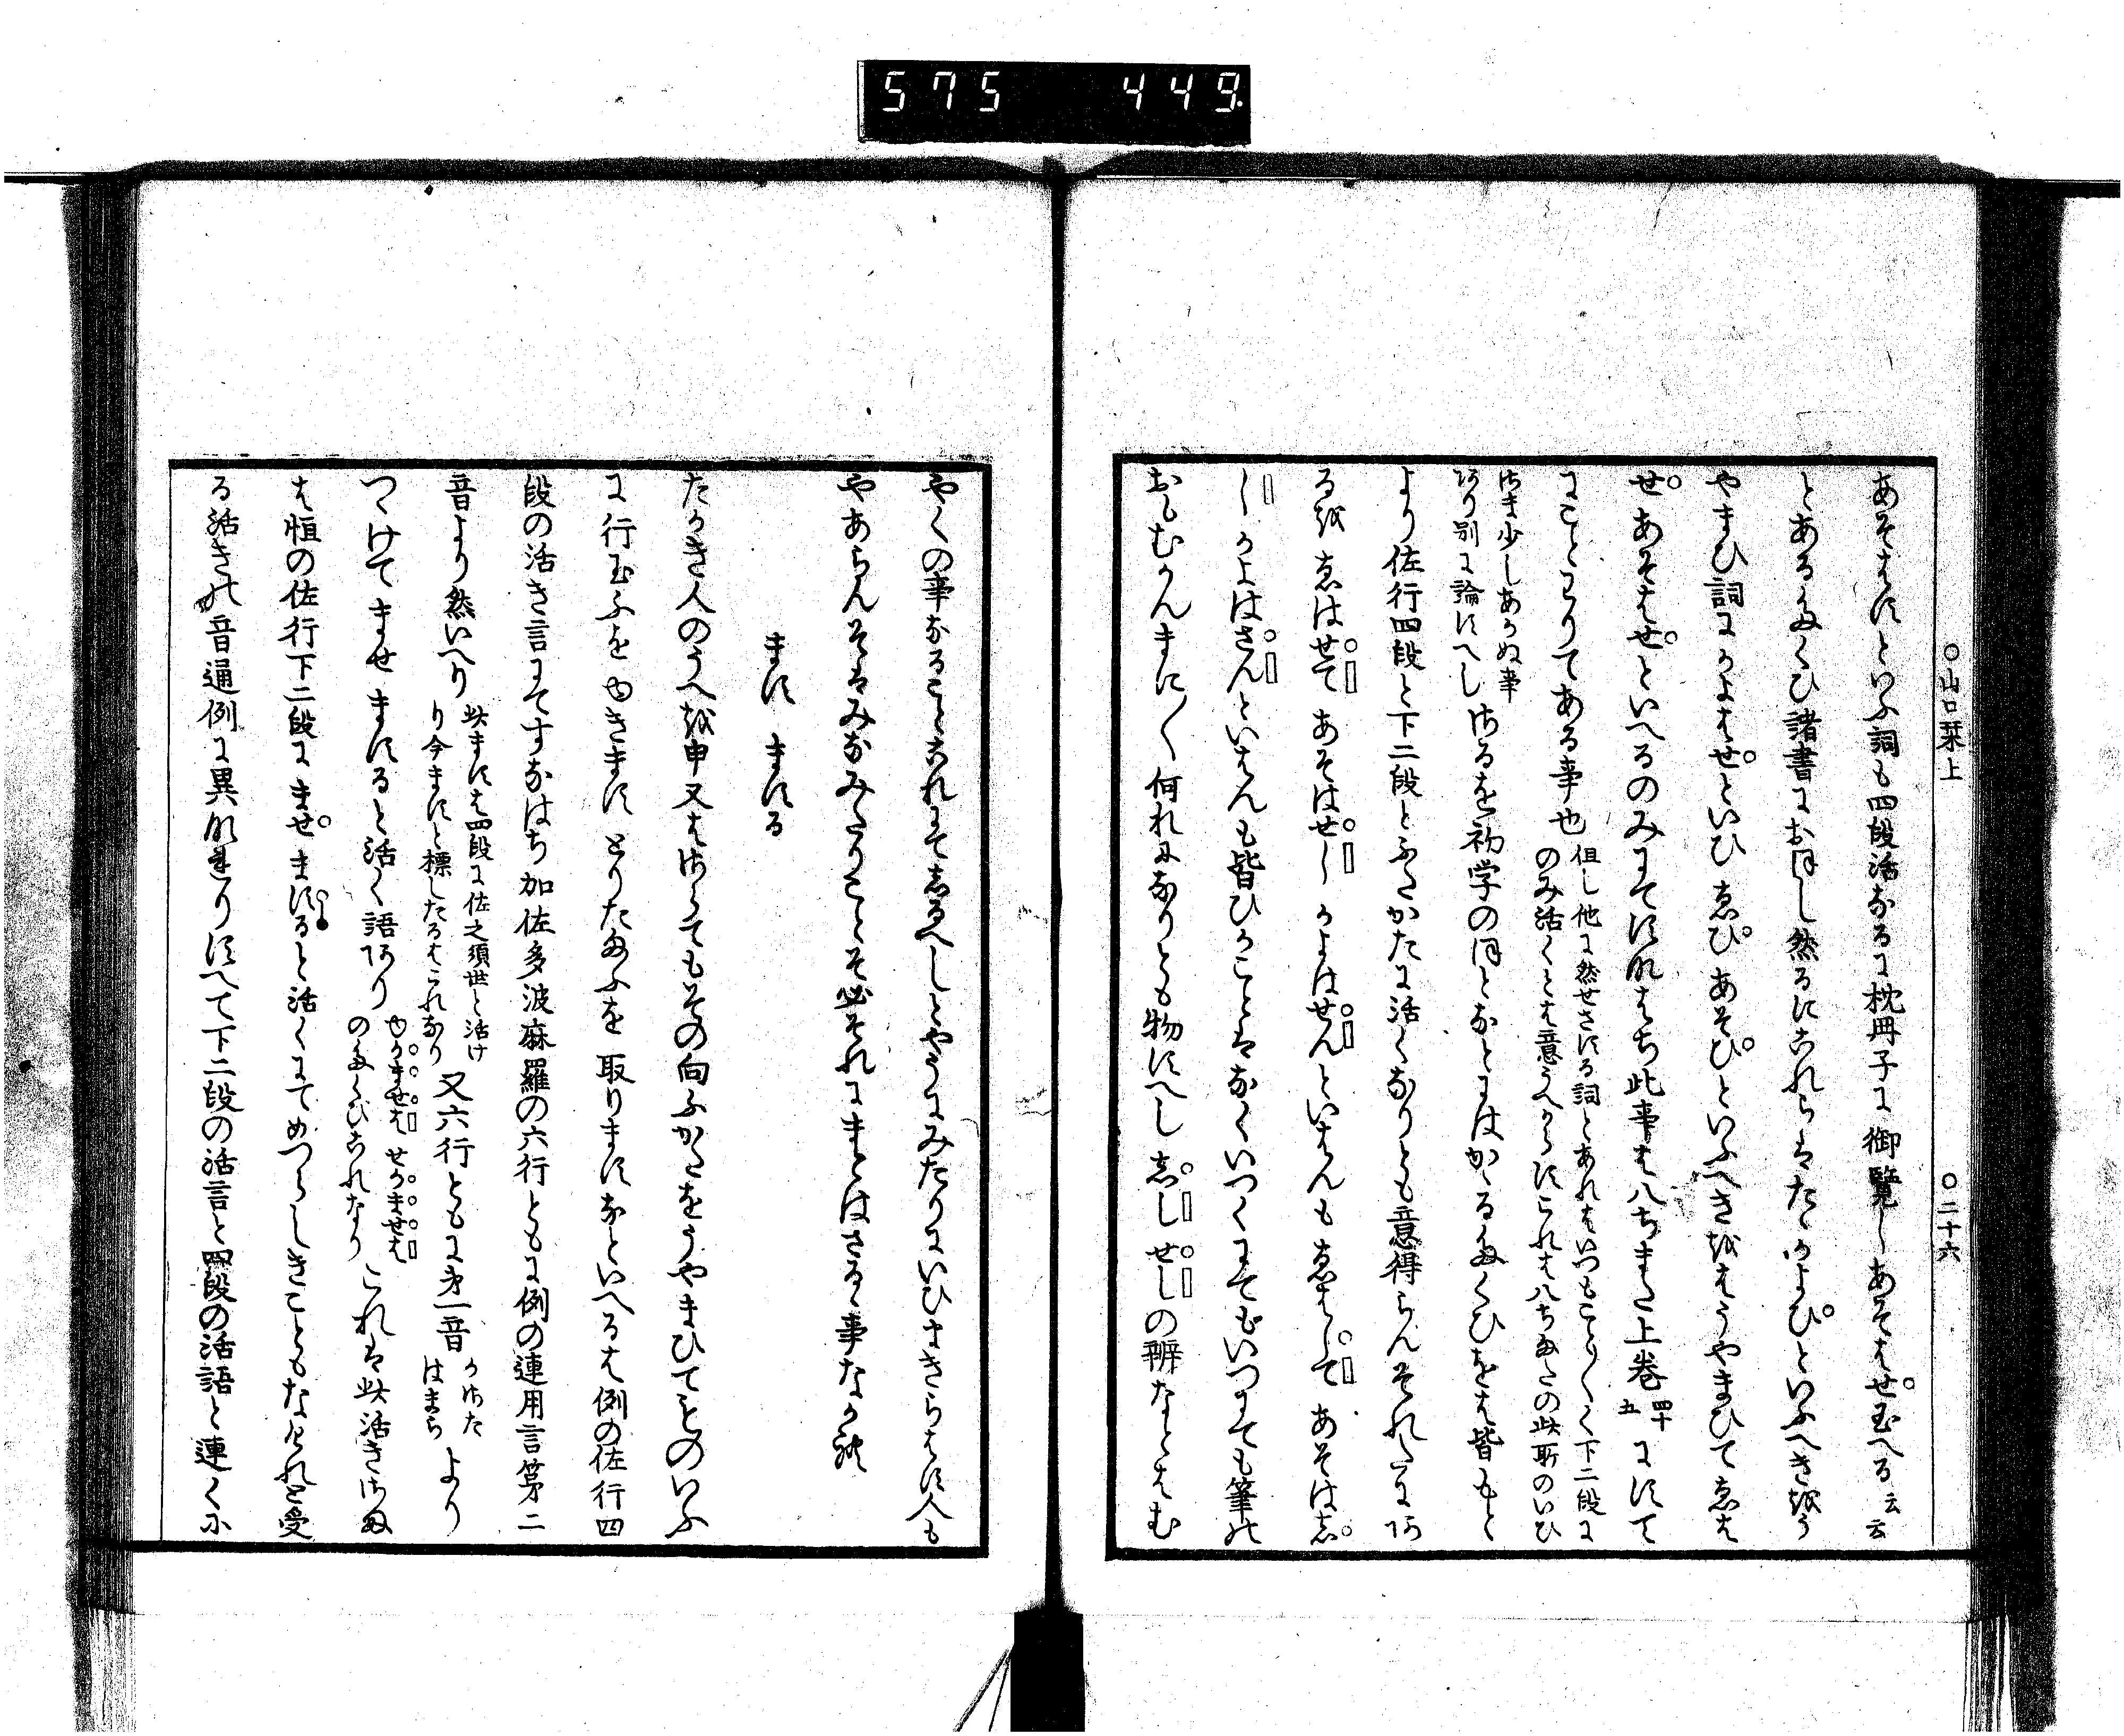 575 449
○山口栞上 ○二十六
あそはすといふ詞も四段活なるに枕冊子に御覧しあそはせ玉へる云云
とあるたくひ諸書におほし然るにこれらはたゝかよひといふへきをう
やまひ詞にかよはせといひゑひあそひといふへきをはうやまひてゑは
せあそはせといへるのみにてすなはち此事は八ちまた上巻四十五にすて
にことわりてある事也但し他に然せさする詞とあれはいつもことことく下二段に
のみ活くとは意うへからすこれは八ちまたの此所のいひ
さま少しあかぬ事
あり別に論すへしさるを初学のほとなとにはかゝるたくひをは皆もと
より佐行四段と下二段とふたかたに活くなりとも意得らんそれたにあ
るをゑはせてあそはせしかよはせんといはんもゑはしてあそはし
しかよはさんといはんも皆ひかことはなくいつくにてもいつにても筆の
おもむかんまに〱何れになりとも物すへししせしの辨なとはむ
やくの事なることこれにてしるへしとやうにみたりにいひさきらはす人も
やあらんそはみなみたりことそ必それにまとはさるゝ事なかれ
ます まする
たかき人のうへを申又はさらてもその向ふかたをうやまひてものいふ
に行玉ふをゆきますとりたまふを取りますなといへるは例の佐行四
段の活き言にてすなはち加佐多波麻羅の六行ともに例の連用言第二
音より然いへり此ますは四段に佐之須世と活け
り今ますと標したるはこれなり又六行ともに第一音かさた
はまらより
つゝけてませまするとと活く語ありゆかませは せかませは
のたくひこれなりこれは此活きさま
は恒の佐行下二段にませまするとと活くにてめつらしきこともなけれと受
る活きの音通例に異なれりすへて下二段の活言と四段の活語と連くに